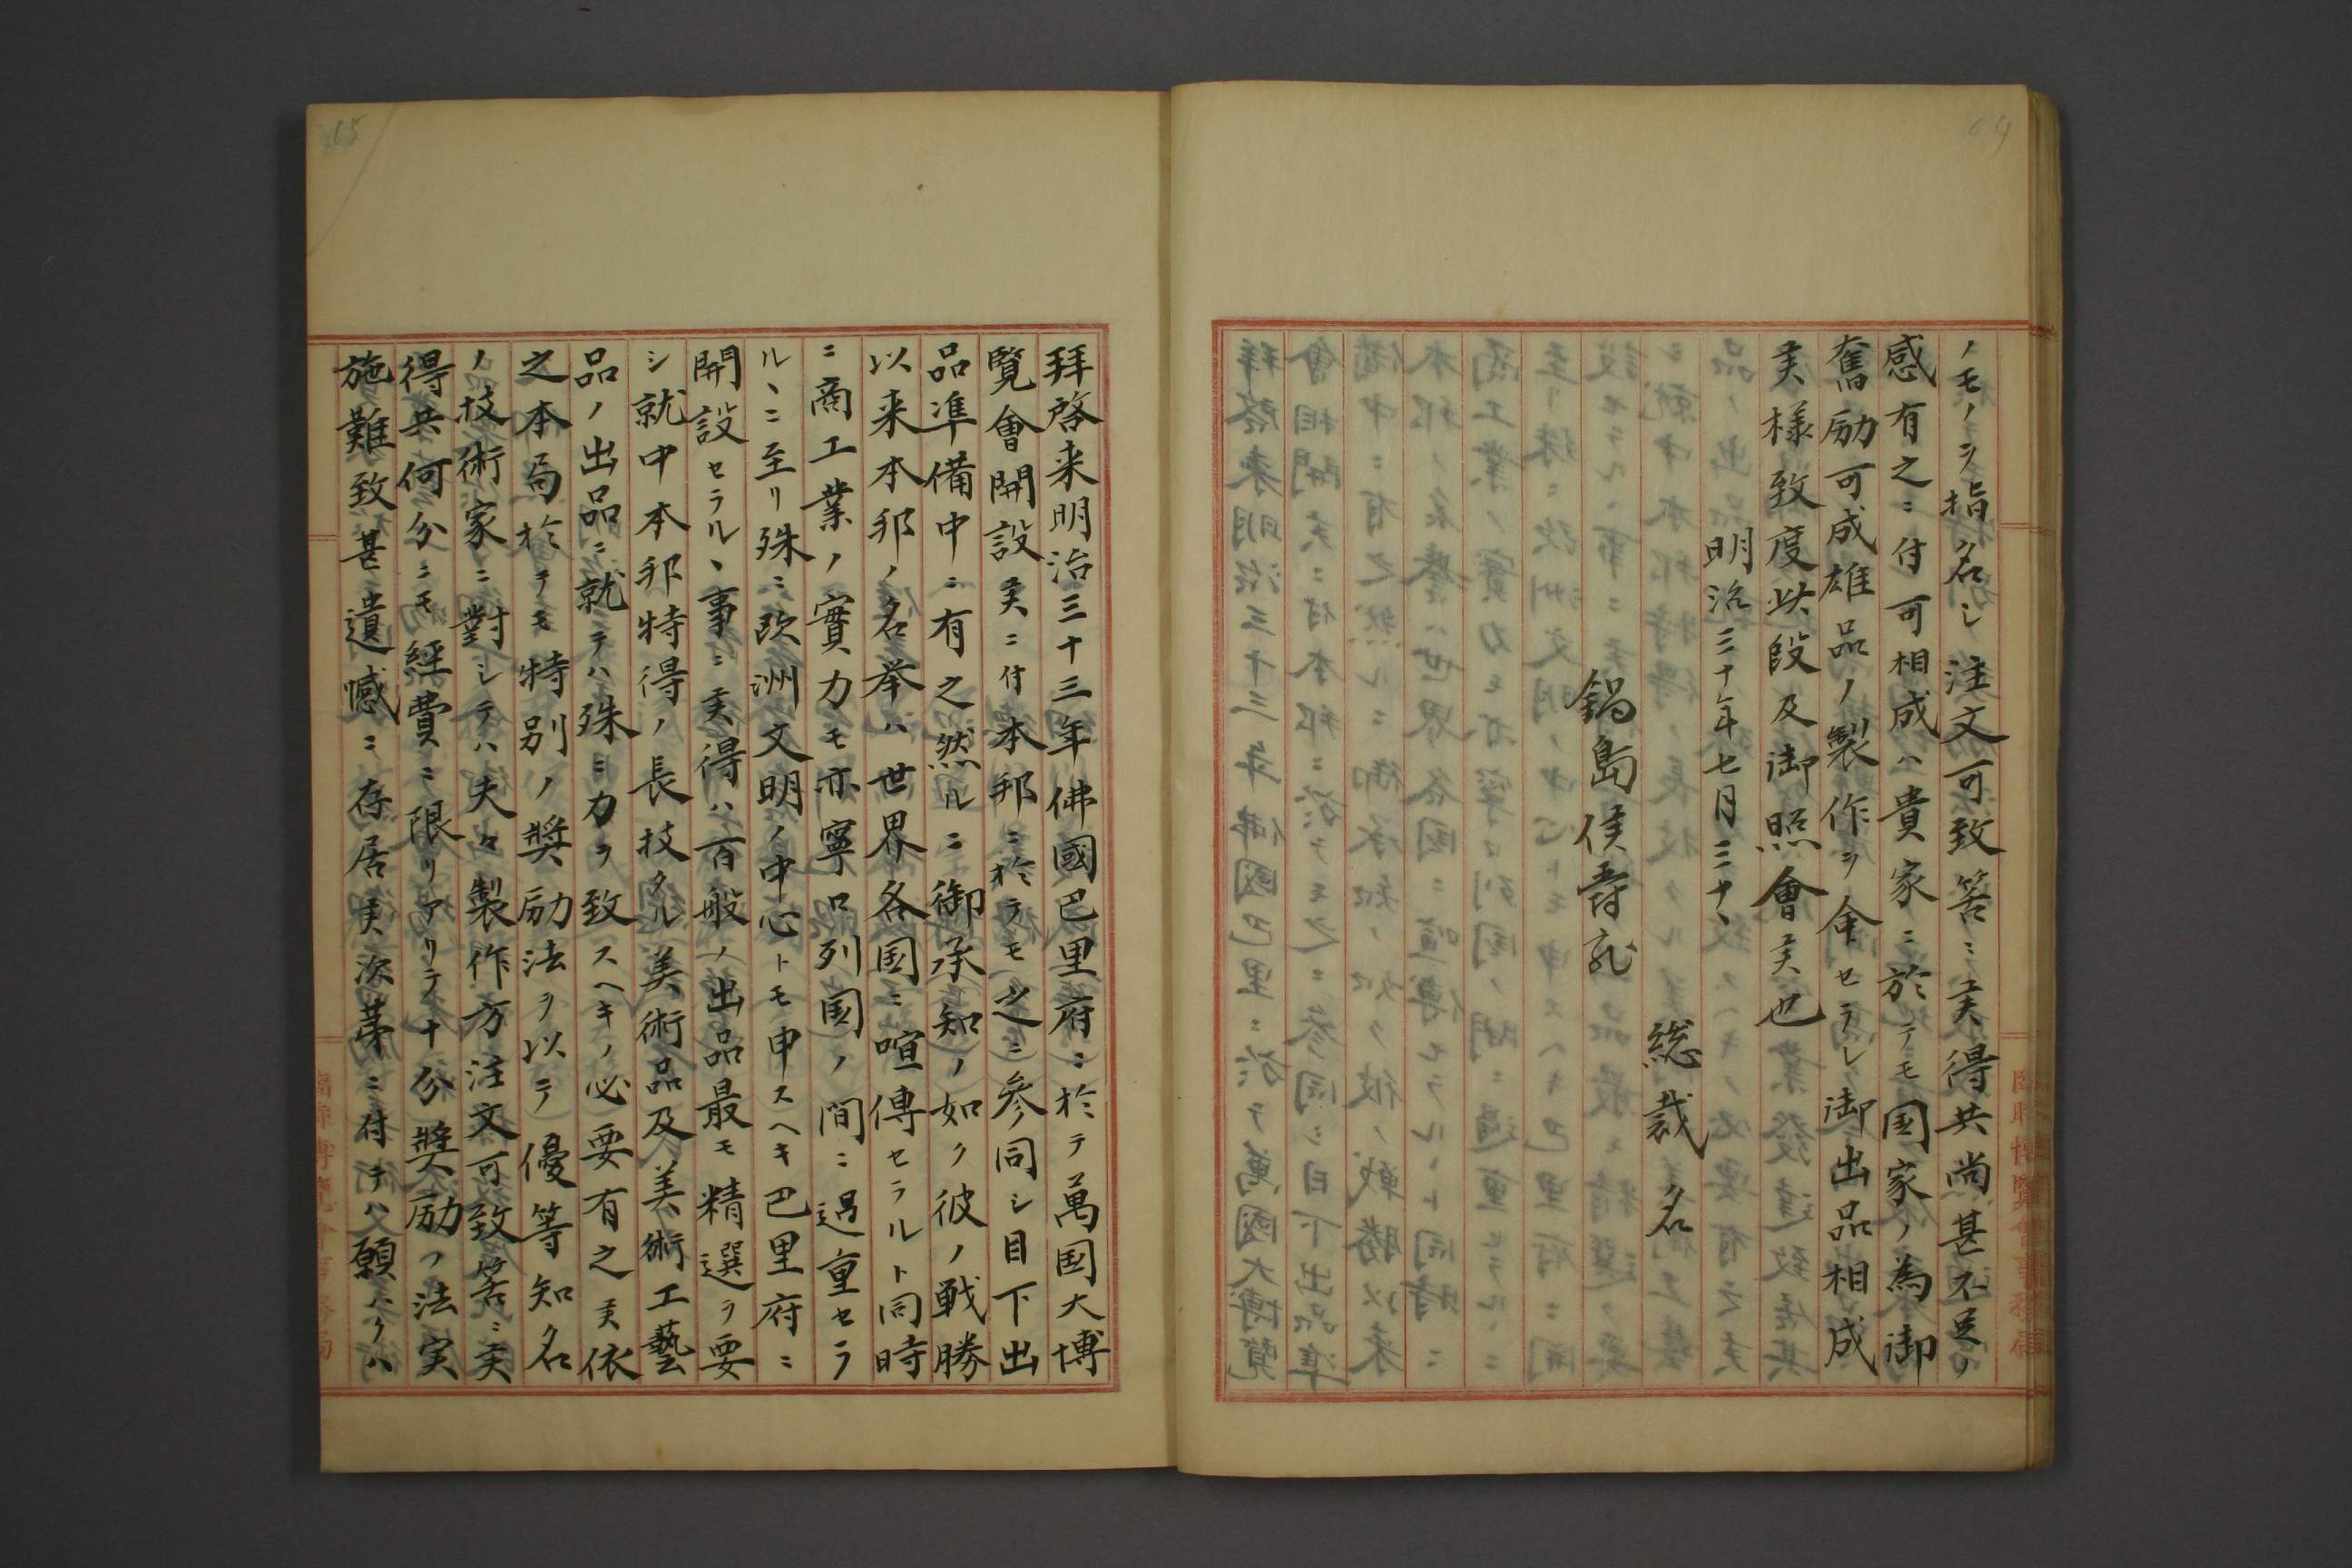 64
ノモノヲ指名シ注文可致筈ニ候得共尚甚不足ノ
感有之ニ付可相成ハ貴家ニ於テモ国家ノ為御
奮励可成雄品ノ製作ヲ命セラレ御出品相成
候様致度此段及御照會候也
明治三十年七月三十、
総裁名
鍋島侯爵宛
65
拜啓来明治三十三年佛國巴里府ニ於テ萬国大博
覧會開設候ニ付本邦ニ於ラモ之ニ参同シ目下出
品準備中ニ有之然ルニ御承知ノ如ク彼ノ戦勝
以来本邦ノ名挙ハ世界各国ニ喧傳セラルト同時
ニ商工業ノ實力モ亦寧ロ列国ノ間ニ過重セラ
ルヽニ至リ殊ニ欧洲文明ノ中心トモ申スヘキ巴里府ニ
開設セラルヽ事ニ候得ハ百般ノ出品最モ精選ヲ要
シ就中本邦特得ノ長技タル美術品及美術工藝
品ノ出品ニ就テハ殊ニ力ヲ致スヘキノ必要有之候依
之本局於テモ特別ノ奨励法ヲ以テ優等知名
ノ技術家ニ對シテハ夫々製作方注文可致筈ニ候
得共何分ニモ経費ニ限リアリテ十分奨励ノ法実
施難致甚遺憾ニ存居候次第ニ付テハ願ハクハ